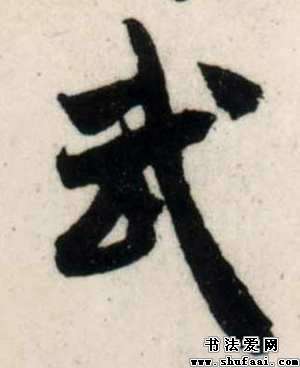 武
书法爱网
www.shufaai.com